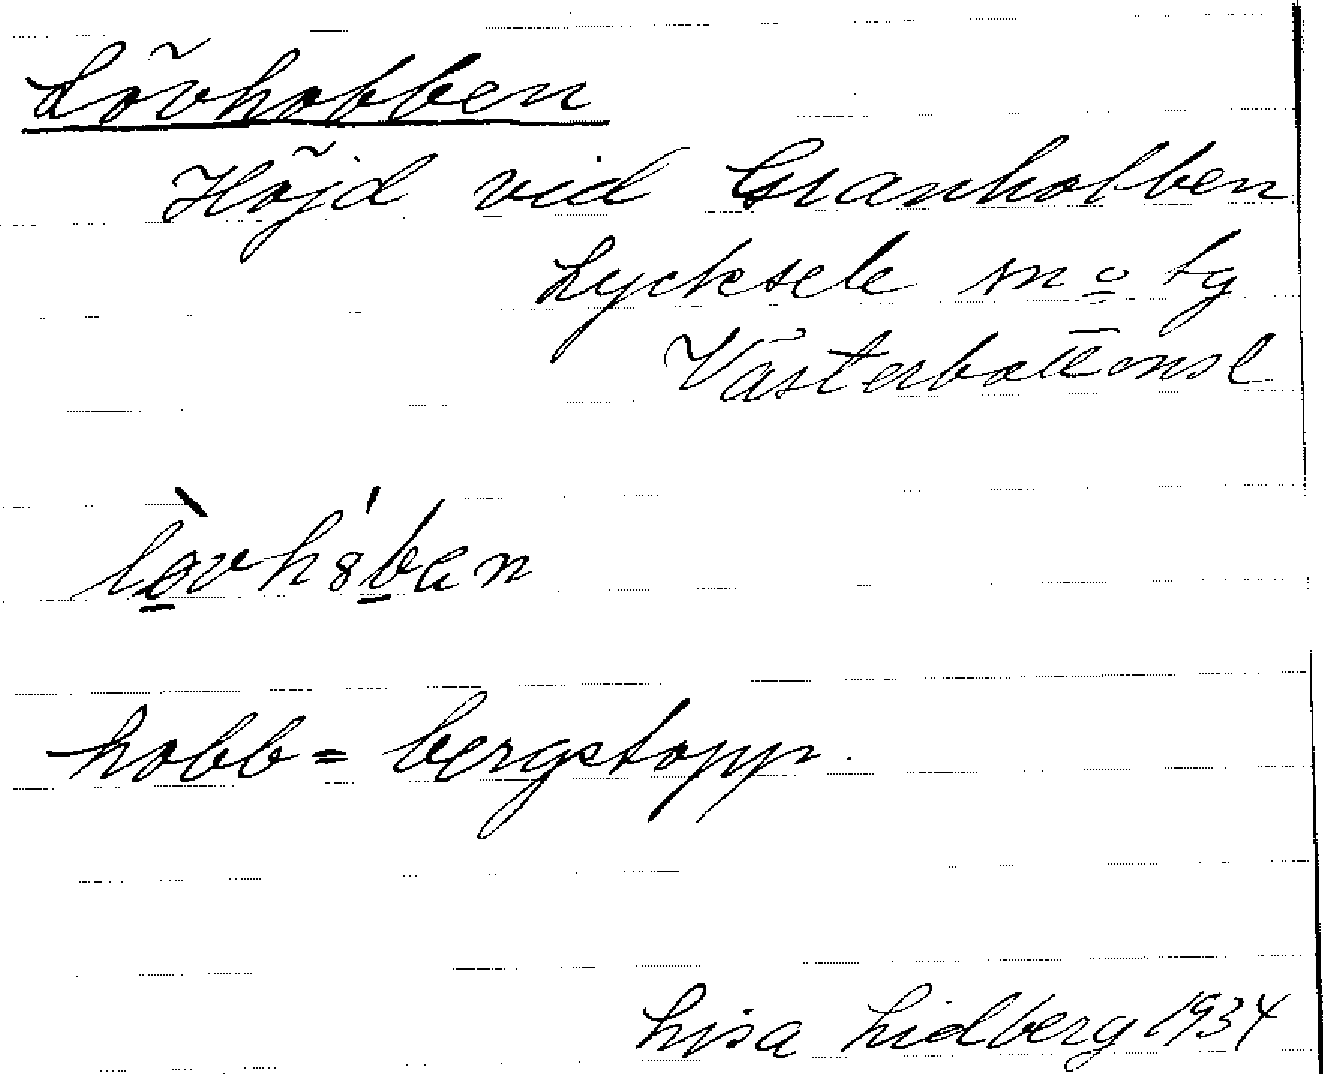 Lövhobben
Höjd vid Granhobben
Lycksele sn o tg
Västerbottensl
hobb = bergstopp.
Lisa Lidberg 1934